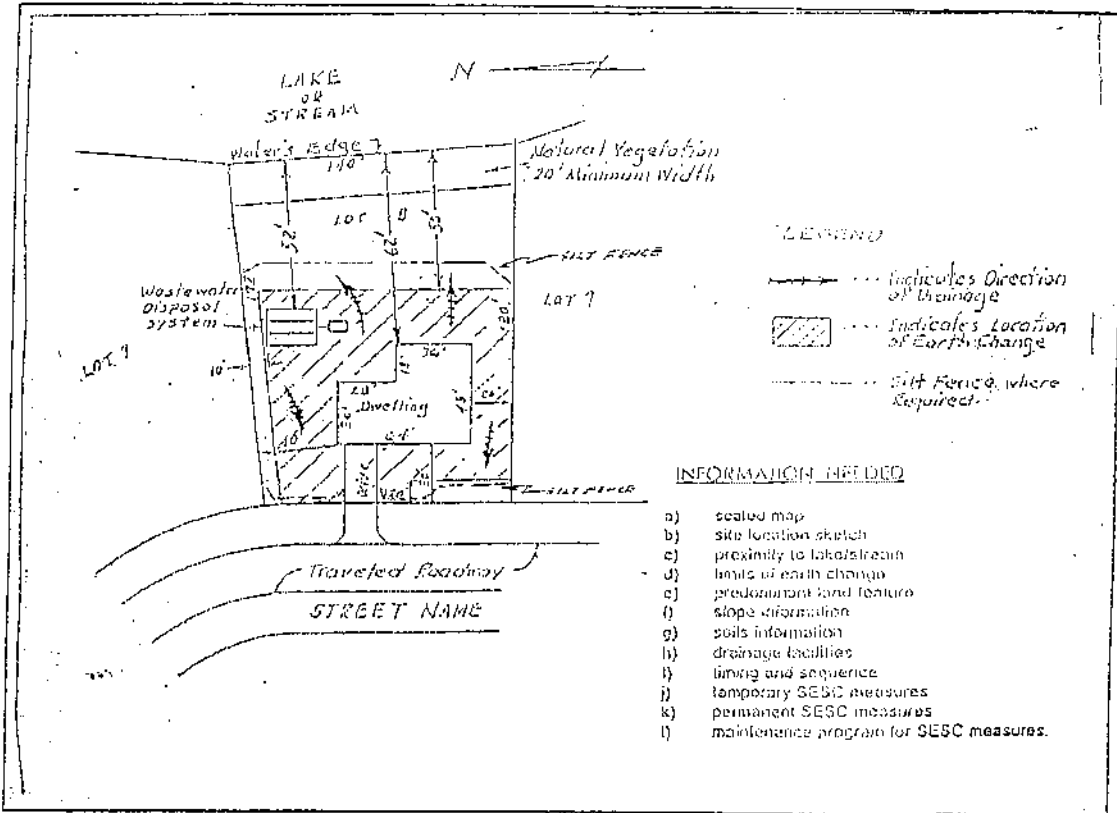 N
LAKE
OR
STREAM
Water's Edge
140'
Natural Vegetation
20' Minimum Width
LOT 8
52'
67'
55'
SILT FENCE
LOT 9
Wastewater
Disposal
System
LOT 7
10'
20'
Dwelling
Drive
SILT FENCE
Traveled Roadway
STREET NAME
LEGEND
Indicates Direction
of Drainage
Indicates Location
of Earth Change
Silt Fence, where
Required
INFORMATION NEEDED
a) scaled map
b) site location sketch
c) proximity to lake/stream
d) limits of earth change
e) predominant land feature
f) slope information
g) soils information
h) drainage facilities
i) timing and sequence
j) temporary SESC measures
k) permanent SESC measures
l) maintenance program for SESC measures.